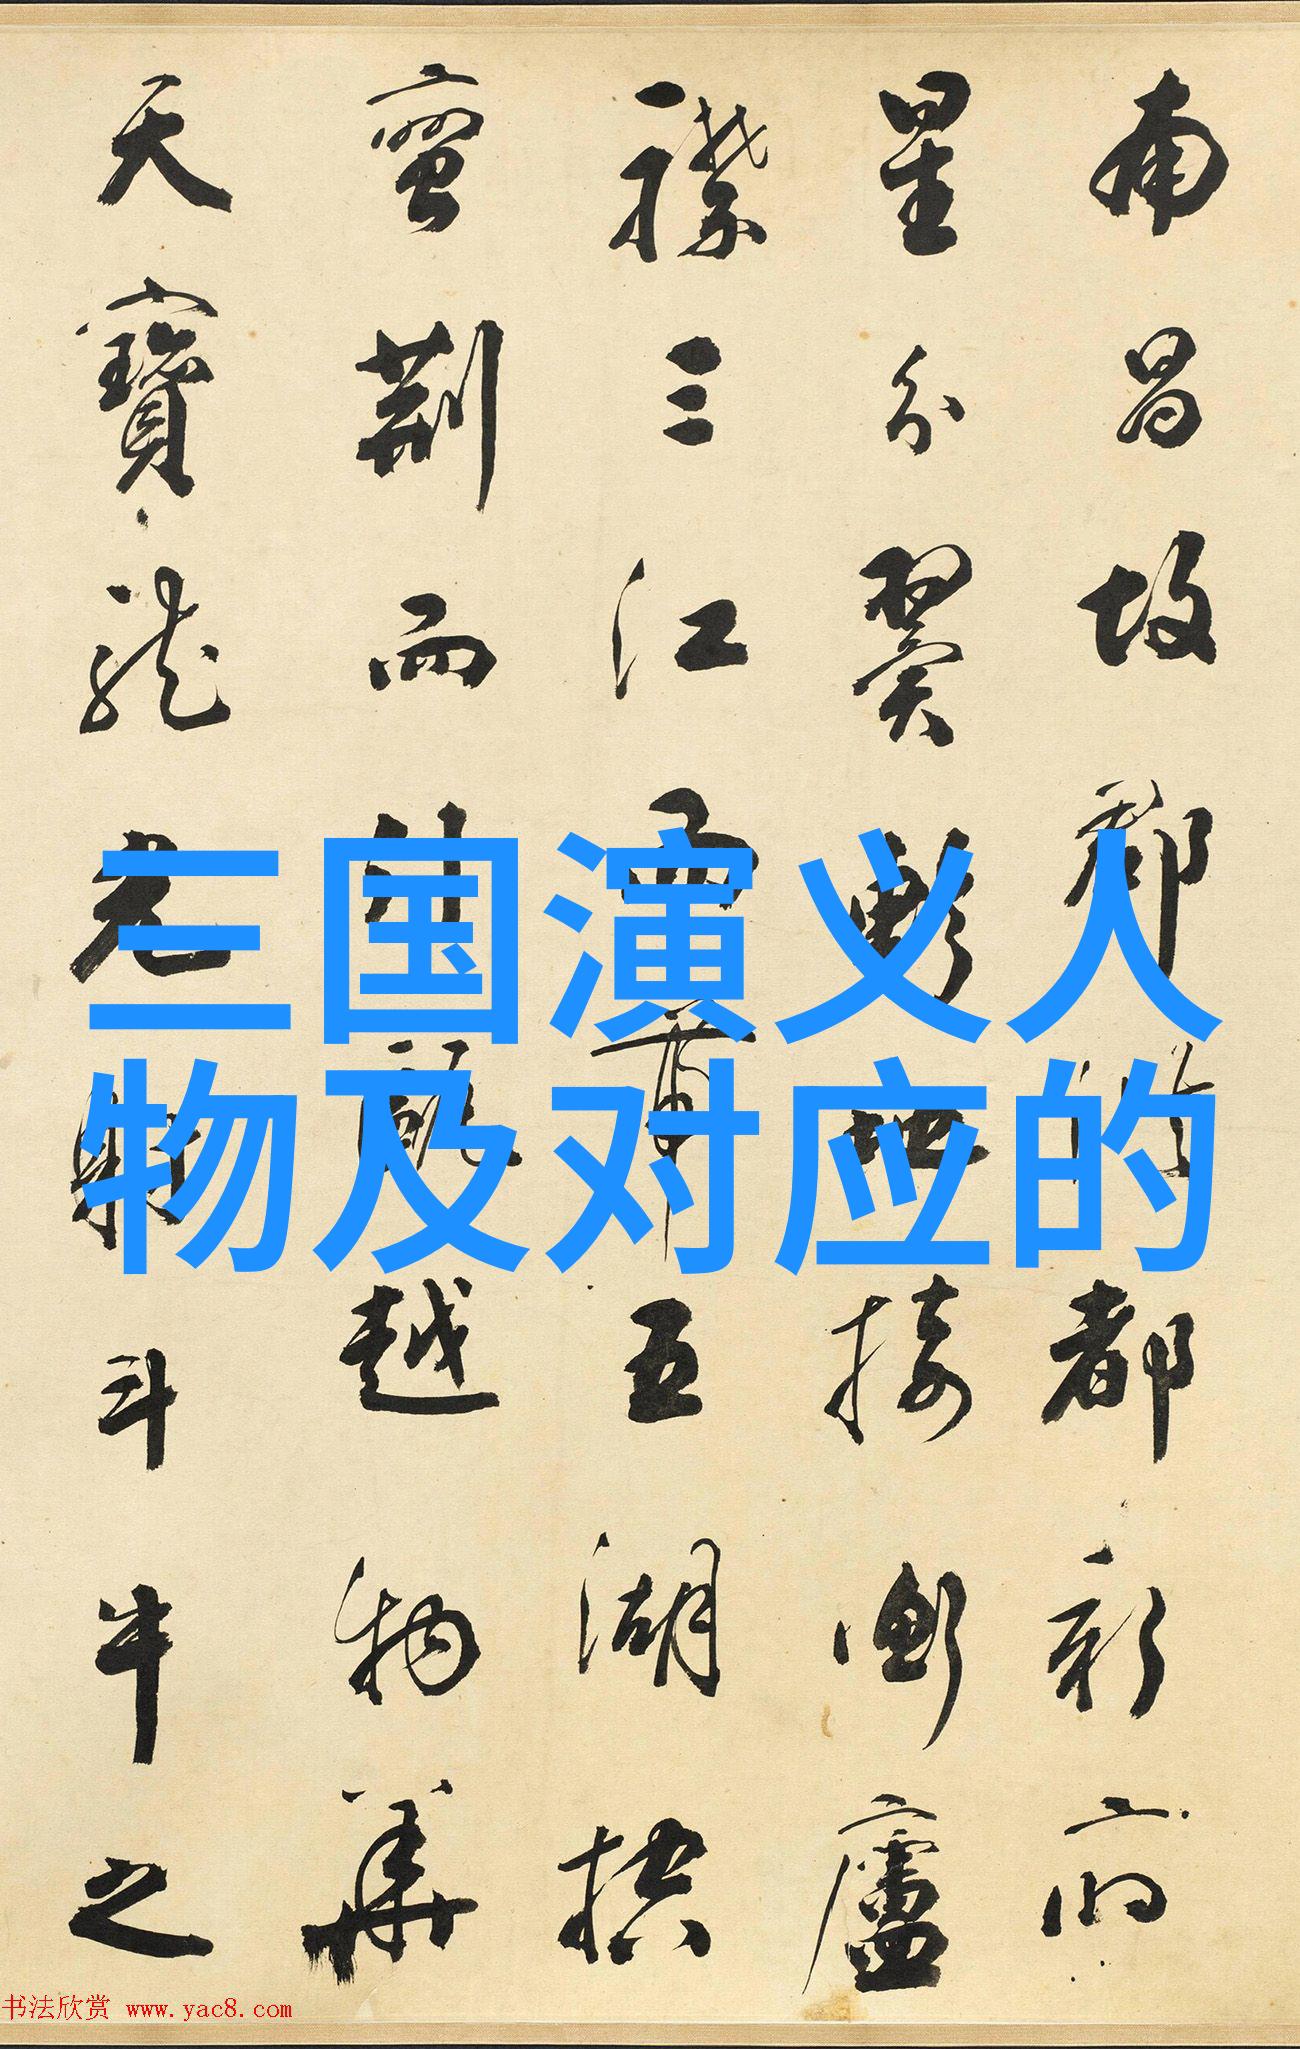 南昌故郡都新府
星分翼軫地接衡廬
襟三江而帶五湖控
蠻荊而引甌越物華
天寶龍光射斗牛之
三国演义人
物及对应的
书法欣赏 www.yac8.com